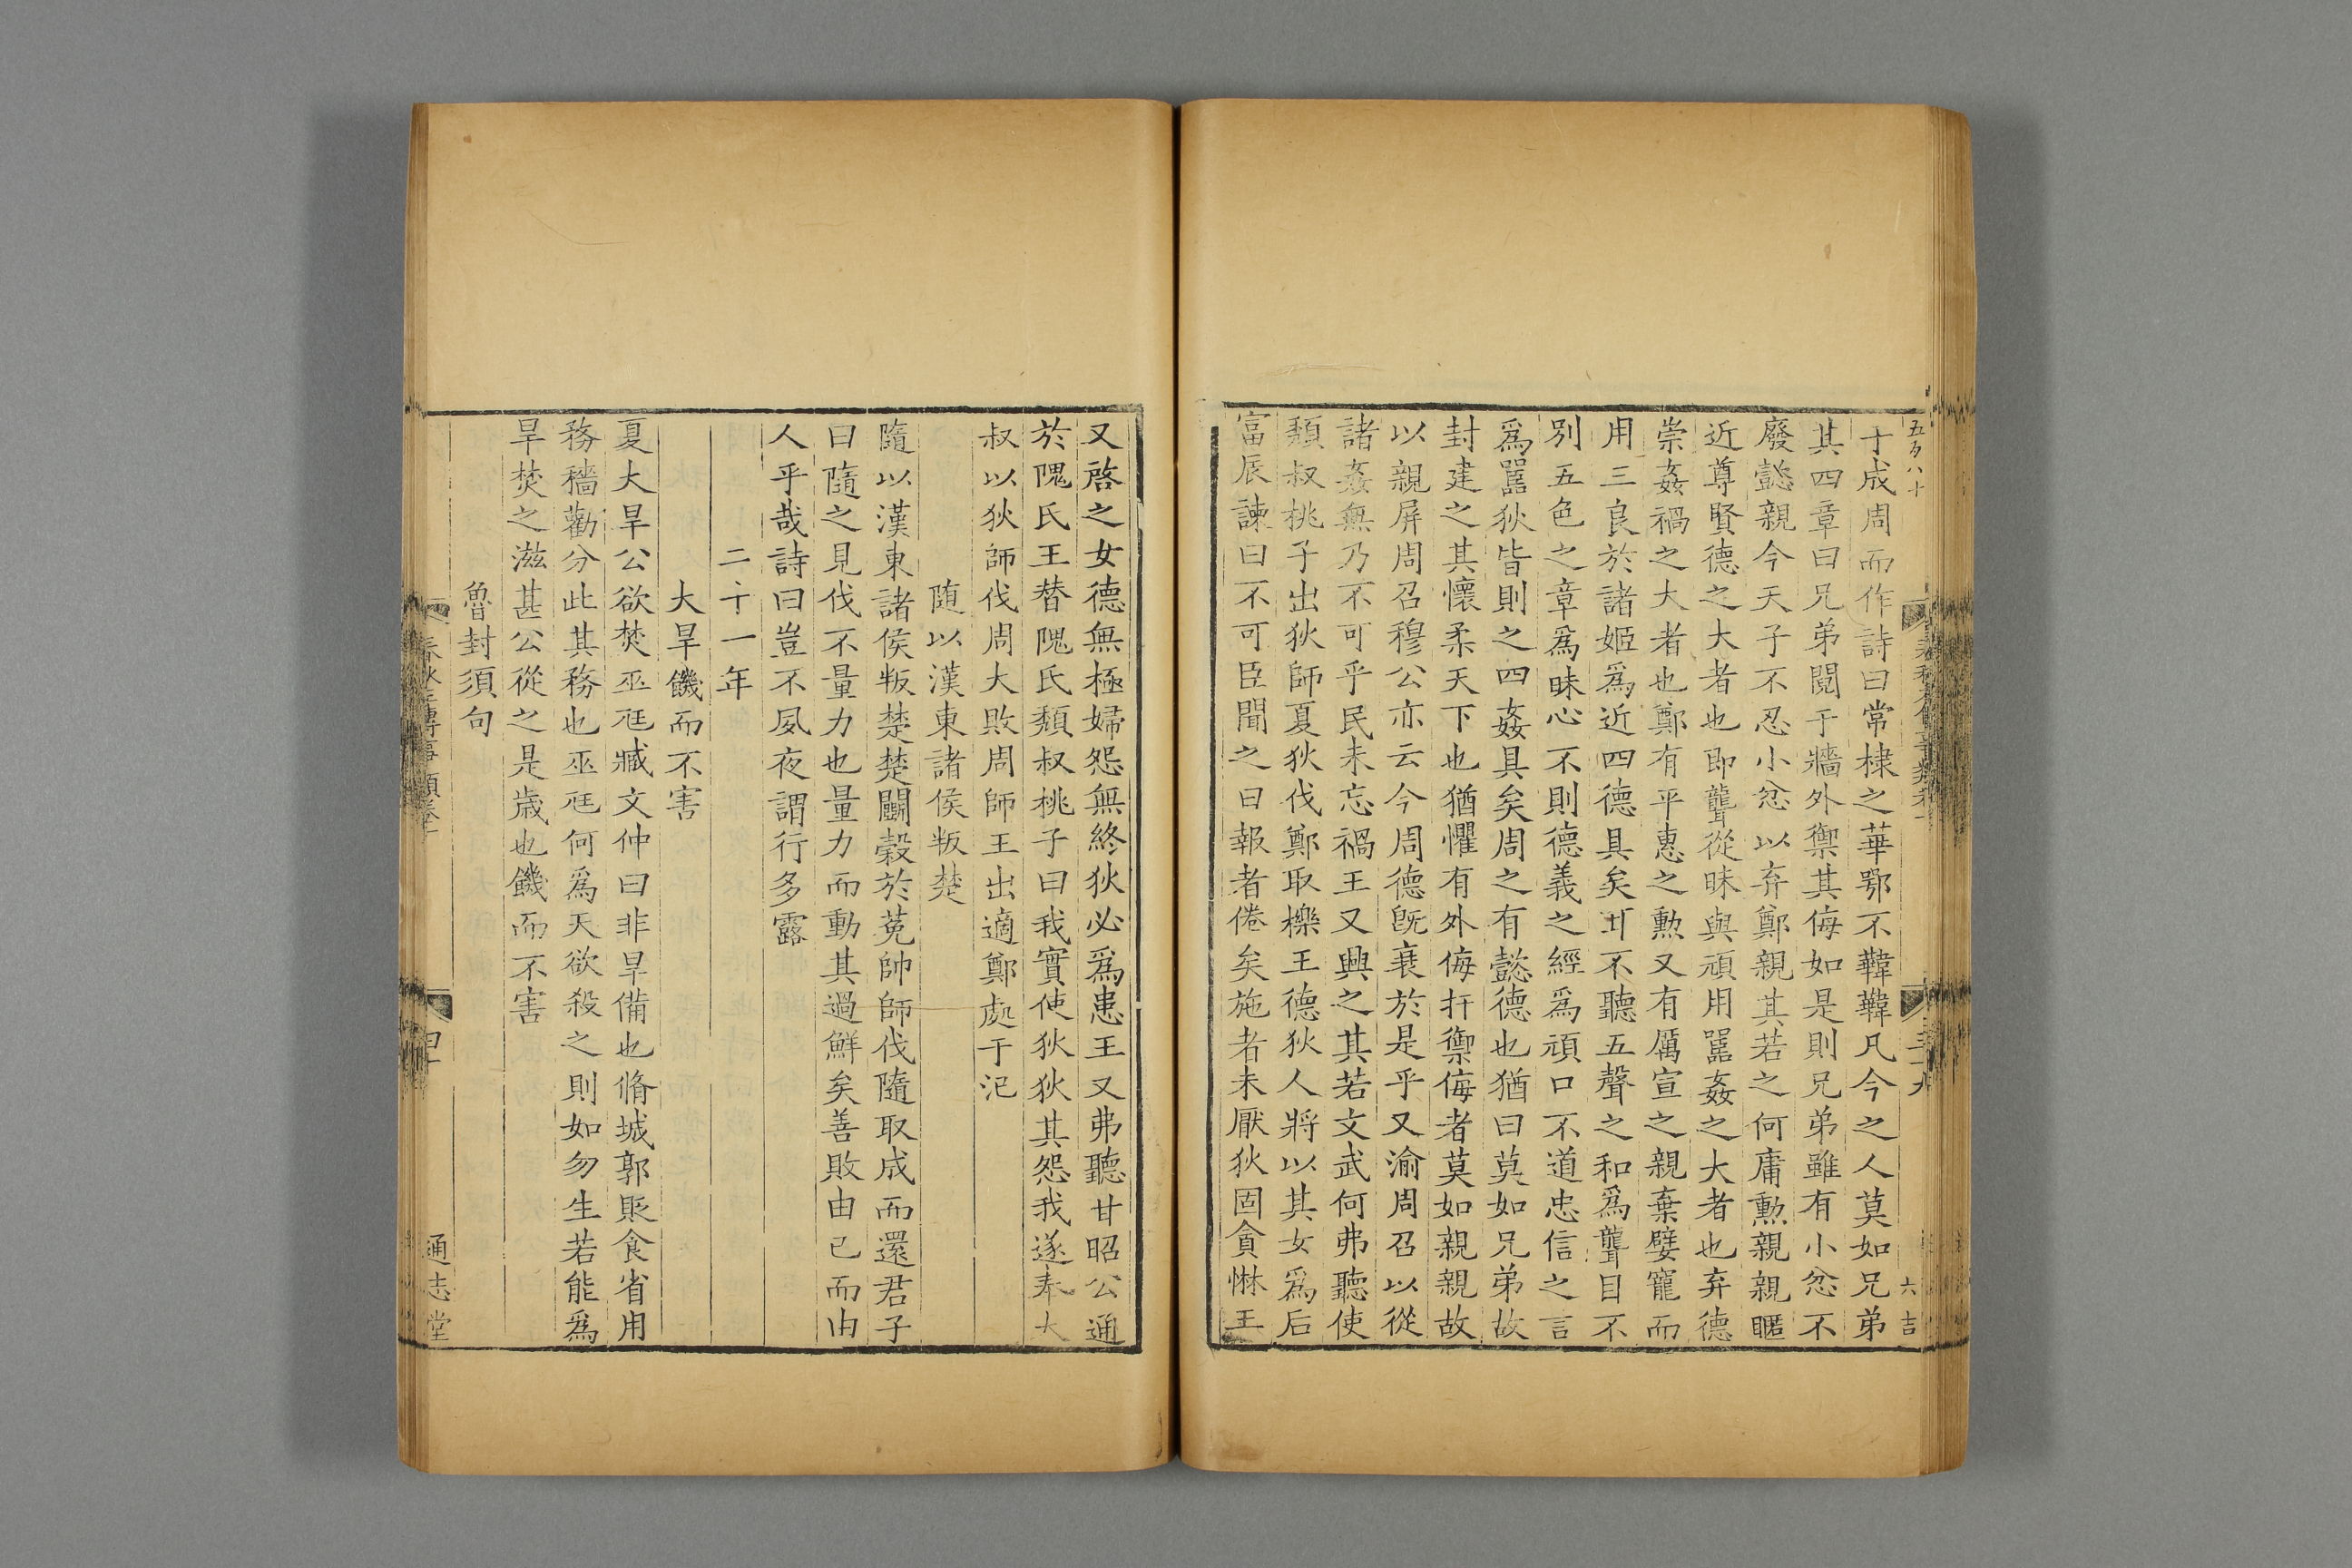 五百八十
于成周而作詩曰常棣之華鄂不韡韡凡今之人莫如兄弟
其四章曰兄弟鬩于牆外禦其侮如是則兄弟雖有小忿不
廢懿親今天子不忍小忿以弃鄭親其若之何庸勲親親暱
近尊賢德之大者也即聾從昧與頑用嚚姦之大者也弃德
崇姦禍之大者也鄭有平惠之勲又有厲宣之親棄嬖寵而
用三良於諸姬爲近四德具矣耳不聽五聲之和爲聾目不
別五色之章爲昧心不則德義之經爲頑口不道忠信之言
爲嚚狄皆則之四姦具矣周之有懿德也猶曰莫如兄弟故
封建之其懷柔天下也猶懼有外侮扞禦侮者莫如親親故
以親屏周召穆公亦云今周德旣衰於是乎又渝周召以從
諸姦無乃不可乎民未忘禍王又興之其若文武何弗聽使
頽叔桃子出狄師夏狄伐鄭取櫟王德狄人將以其女爲后
富辰諫曰不可臣聞之曰報者倦矣施者未厭狄固貪惏王
六吉
又啓之女德無極婦怨無終狄必爲患王又弗聽甘昭公通
於隗氏王替隗氏頽叔桃子曰我實使狄狄其怨我遂奉大
叔以狄師伐周大敗周師王出適鄭處于氾
随以漢東諸侯叛楚
隨以漢東諸侯叛楚楚鬭穀於菟帥師伐隨取成而還君子
曰隨之見伐不量力也量力而動其過鮮矣善敗由己而由
人乎哉詩曰豈不夙夜謂行多露
二十一年
大旱饑而不害
夏大旱公欲焚巫尫臧文仲曰非旱備也脩城郭貶食省用
務穡勸分此其務也巫尫何爲天欲殺之則如勿生若能爲
旱焚之滋甚公從之是歲也饑而不害
魯封須句
春秋左傳事類卷十
四十
通志堂